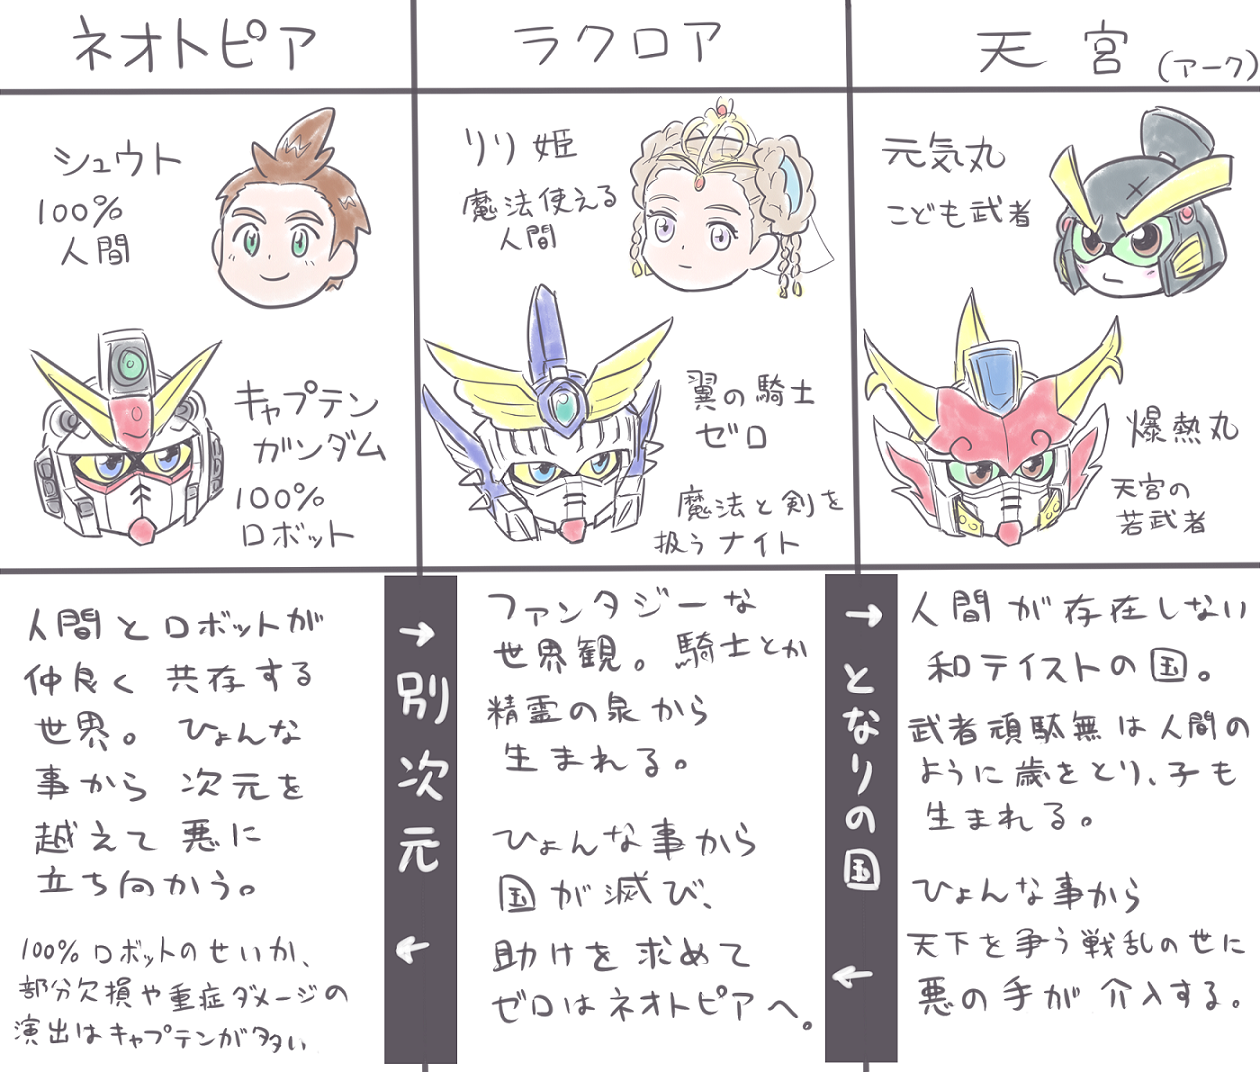 ネオトピア
シュウト
100%
人間
キャプテン
ガンダム
100%
ロボット
人間とロボットが
仲良く共存する
世界。ひょんな
事から次元を
越えて悪に
立ち向かう。
100%ロボットのせいか、
部分欠損や重症ダメージの
演出はキャプテンが多い
→別次元←
ラクロア
リリ姫
魔法使える
人間
翼の騎士
ゼロ
魔法と剣を
扱うナイト
ファンタジーな
世界観。騎士とか
精霊の泉から
生まれる。
ひょんな事から
国が滅び、
助けを求めて
ゼロはネオトピアへ。
→となりの国←
天宮(アーク)
元気丸
こども武者
爆熱丸
天宮の
若武者
人間が存在しない
和テイストの国。
武者頑駄無は人間の
ように歳をとり、子も
生まれる。
ひょんな事から
天下を争う戦乱の世に
悪の手が介入する。